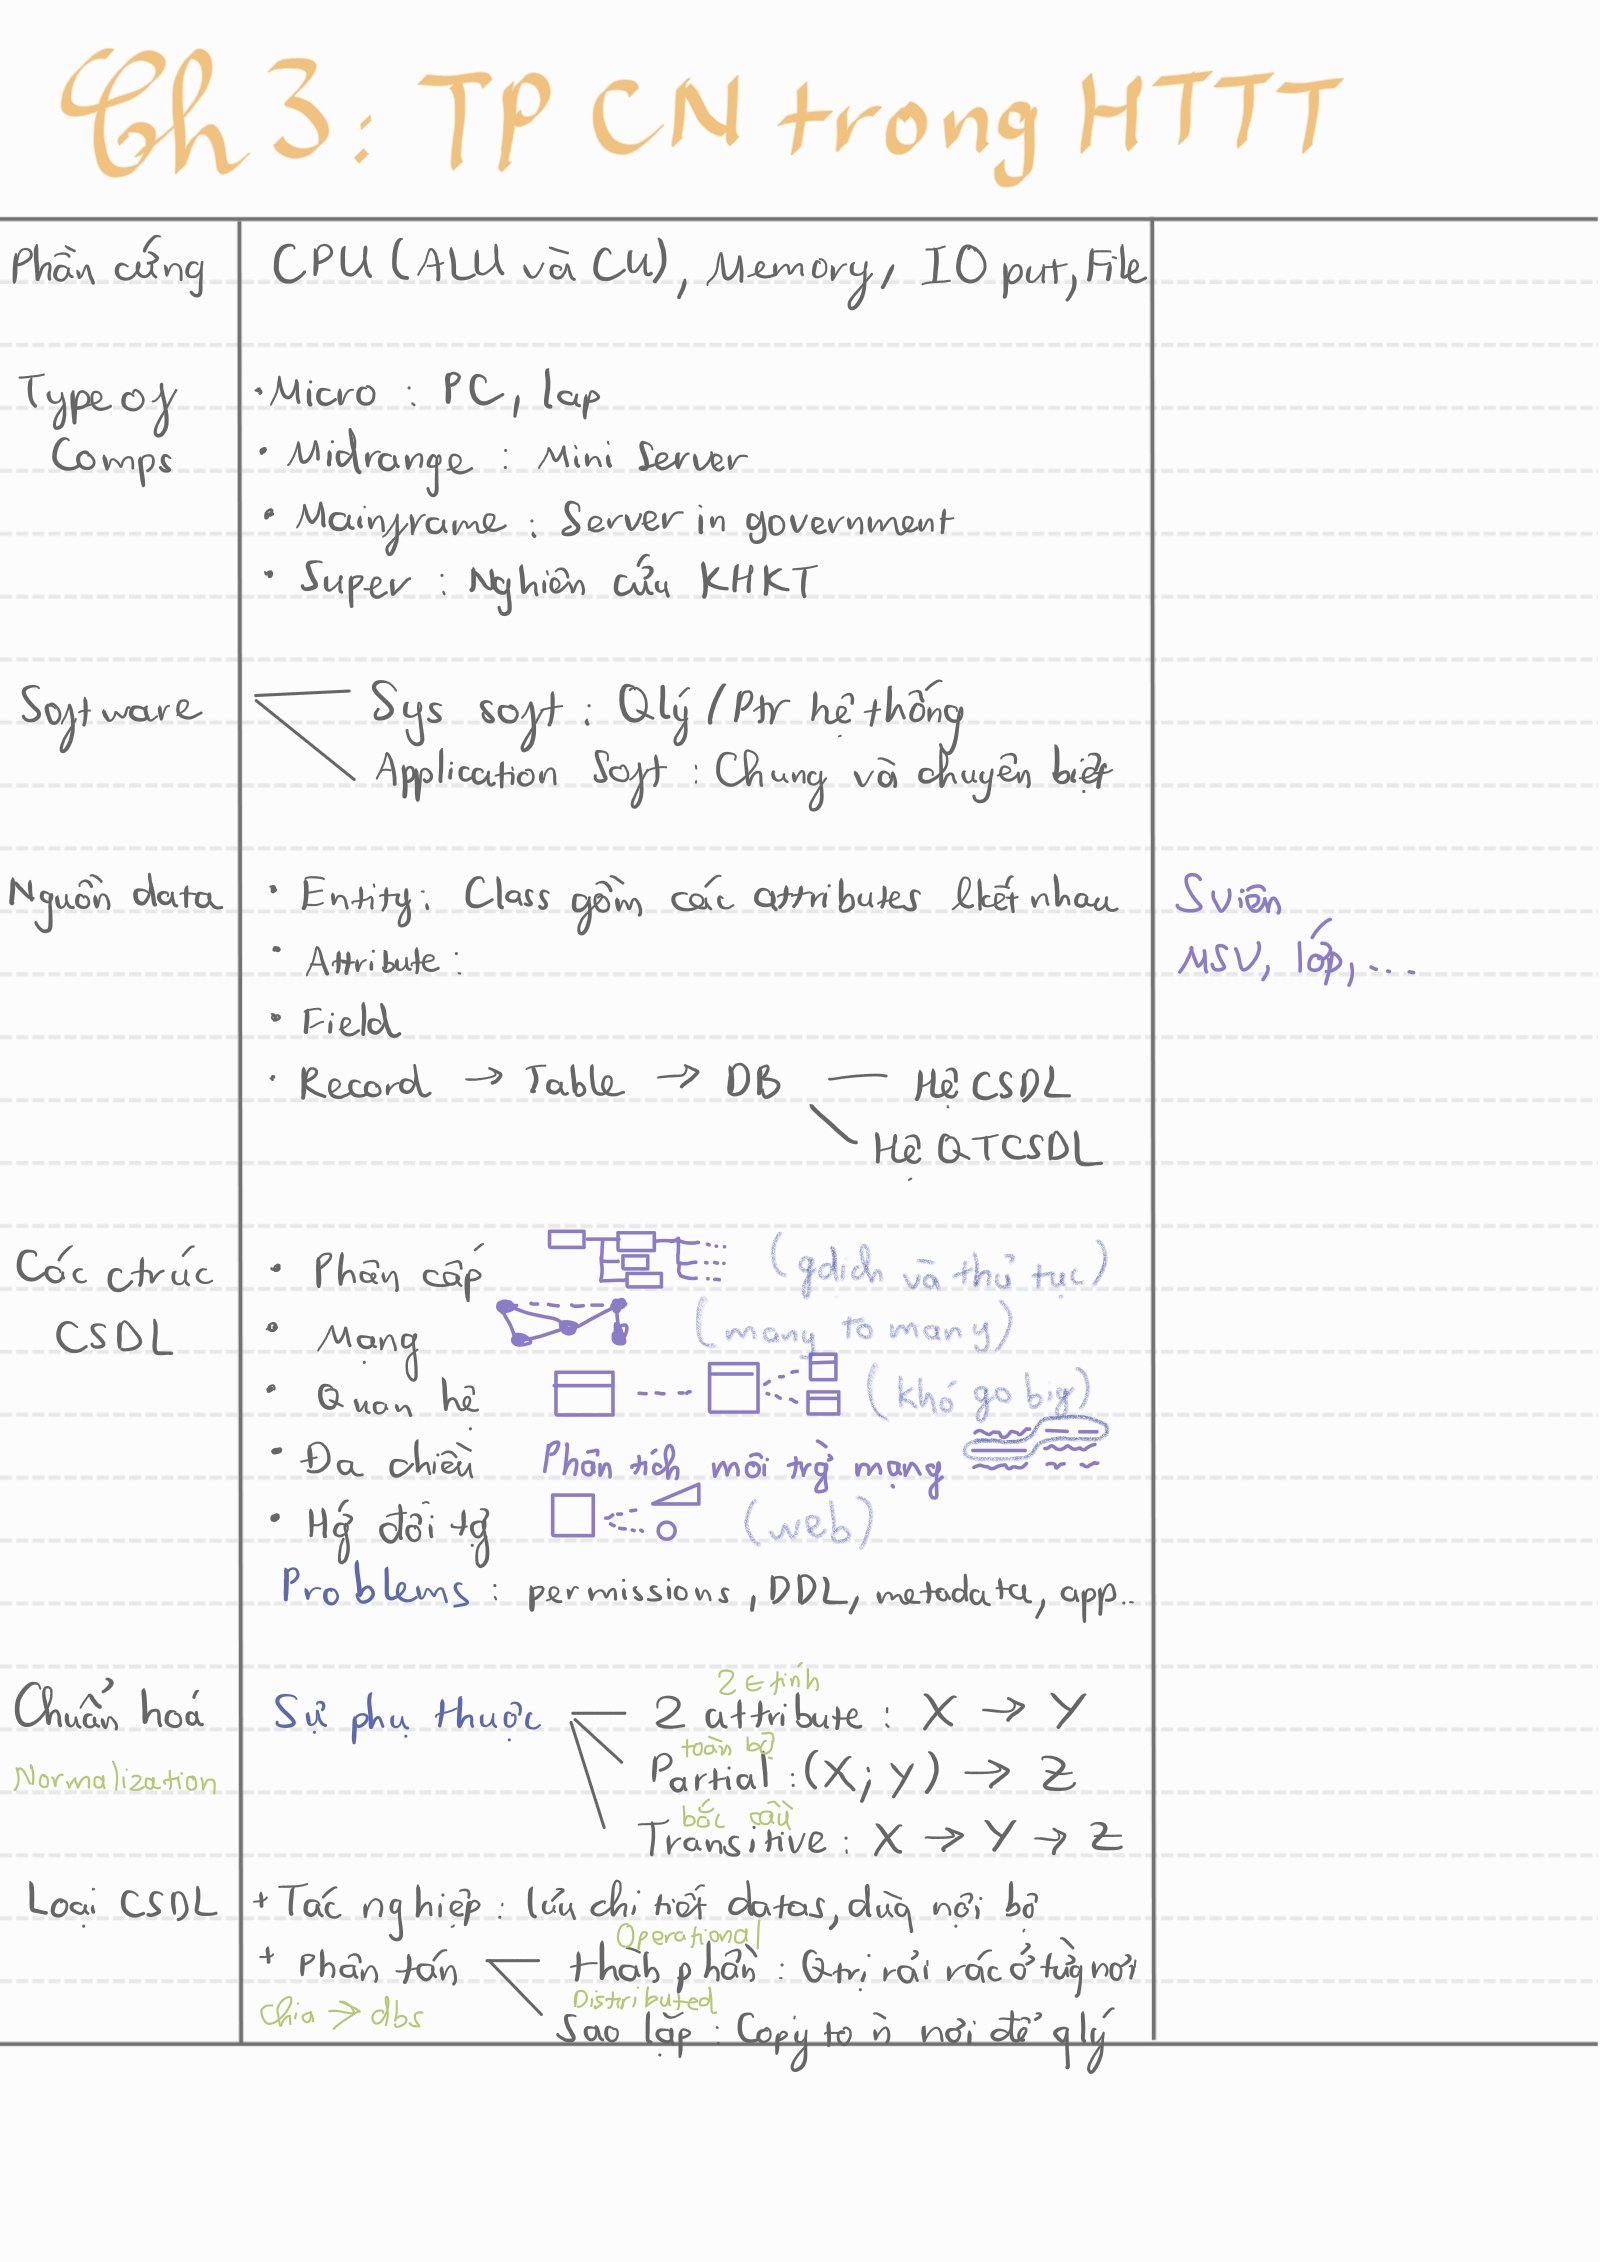 Ch 3: TP CN trong HTTT
Phần cứng
CPU (ALU và CU), Memory, IO put, File
Type of
Comps
• Micro : PC, lap
• Midrange : Mini Server
• Mainframe : Server in government
• Super : Nghiên cứu KHKT
Software
Sys soft : Qlý / Ptr hệ thống
Application Soft : Chung và chuyên biệt
Nguồn data
• Entity: Class gồm các attributes lkết nhau
S viên
• Attribute :
MSV, lớp, ....
• Field
• Record → Table → DB — Hệ CSDL
Hệ QTCSDL
Các ctrúc
CSDL
• Phân cấp (gdịch và thủ tục)
• Mạng (many to many)
• Quan hệ (khó go big)
• Đa chiều Phân tích môi trg mạng
• Hg đối tg (web)
Problems : permissions, DDL, metadata, app..
Chuẩn hoá
Normalization
Sự phụ thuộc
2 ∈ tính
2 attribute : X → Y
toàn bộ
Partial : (X; Y) → Z
bắc cầu
Transitive : X → Y → Z
Loại CSDL
+ Tác nghiệp : lưu chi tiết datas, dùg nội bộ
Operational
+ Phân tán
thàh phần : Qtrị rải rác ở từg nơi
Chia → dbs
Distributed
Sao lặp : Copy to n nơi để qlý